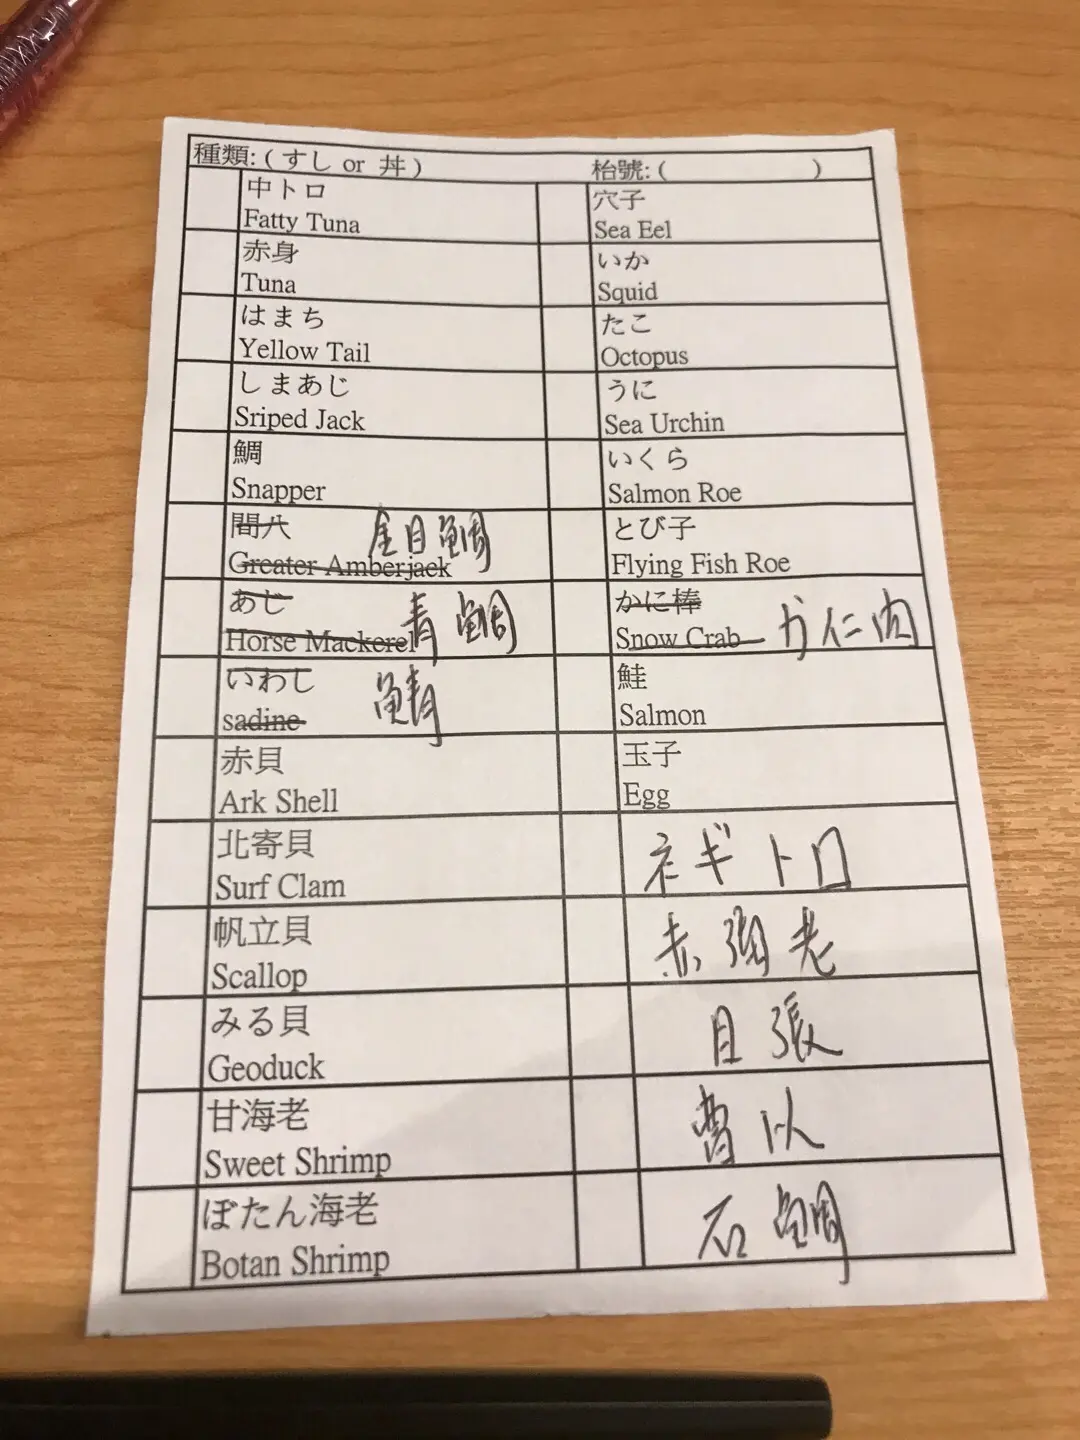 種類: ( すし or 丼 )
枱號: ( )
中トロ
Fatty Tuna
赤身
Tuna
はまち
Yellow Tail
しまあじ
Sriped Jack
鯛
Snapper
間八
Greater Amberjack
金目鯛
あじ
Horse Mackerel
青鯛
いわし
sadine
鯖
赤貝
Ark Shell
北寄貝
Surf Clam
帆立貝
Scallop
みる貝
Geoduck
甘海老
Sweet Shrimp
ぼたん海老
Botan Shrimp
穴子
Sea Eel
いか
Squid
たこ
Octopus
うに
Sea Urchin
いくら
Salmon Roe
とび子
Flying Fish Roe
かに棒
Snow Crab
カ仁肉
鮭
Salmon
玉子
Egg
ネギトロ
赤海老
目張
曹以
石鯛